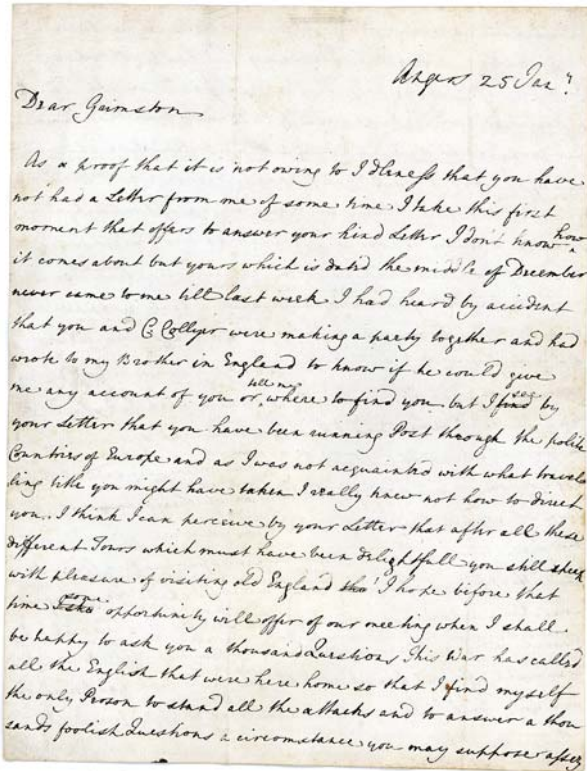 Angers 25 Jany.
Dear Grimston
As a proof that it is not owing to Idleness that you have
not had a Letter from me of some time I take this first
moment that offers to answer your kind Letter I don't know how
it comes about but yours which is dated the middle of December
never came to me till last week I had heard by accident
that you and C Collyer were making a party together and had
wrote to my Brother in England to know if he could give
me any account of you or tell me where to find you but I see by
your Letter that you have been running Post through the polite
Countries of Europe and as I was not acquainted with what travel
ling title you might have taken I really knew not how to direct
you. I think I can perceive by your Letter that after all these
different Tours which must have been delightfull you still speek
with pleasure of visiting old England tho' I hope before that
time some opportunity will offer of our meeting when I shall
be happy to ask you a thousand Questions This War has called
all the English that were here home so that I find myself
the only Person to stand all the attacks and to answer a thou
sands foolish Questions a circomstance you may suppose